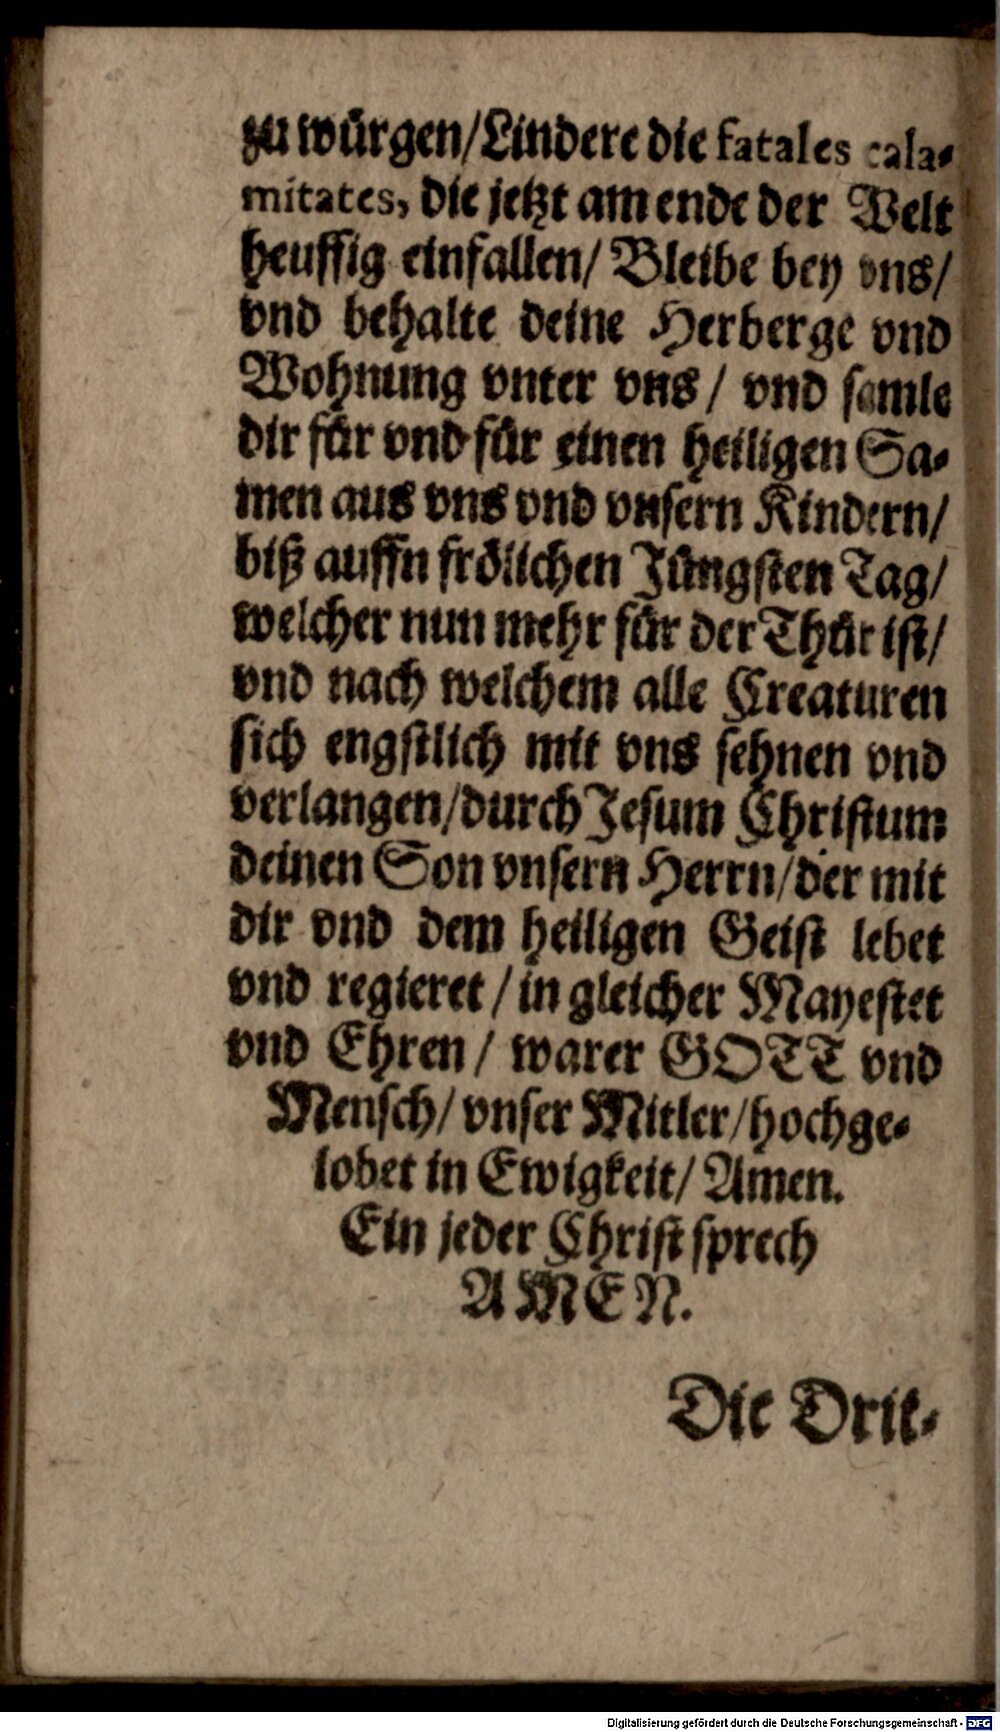 zu würgen/Lindere die fatales cala-
mitates, die jetzt am ende der Welt
heuffig einfallen/ Bleibe bey vns/
vnd behalte deine Herberge vnd
Wohnung vnter vns/ vnd samle
dir für vnd für einen heiligen Sa-
men aus vns vnd vnsern Kindern/
biß auffn frölichen Jüngsten Tag/
welcher nun mehr für der Thür ist/
vnd nach welchem alle Creaturen
sich engstlich mit vns sehnen vnd
verlangen/durch Jesum Christum
deinen Son vnsern Herrn/der mit
dir vnd dem heiligen Geist lebet
vnd regieret/in gleicher Mayestet
vnd Ehren/ warer GOTT vnd
Mensch/vnser Mitler/hochge-
lobet in Ewigkeit/Amen.
Ein jeder Christ sprech
AMEN.
Die Drit-
Digitalisierung gefördert durch die Deutsche Forschungsgemeinschaft - DFG